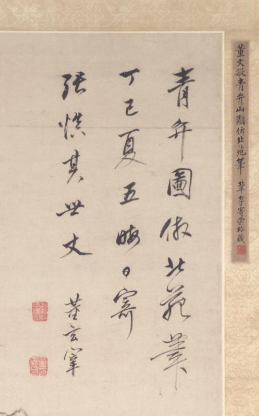 董文敏青弁山圖仿北苑筆
青弁圖倣北苑筆
丁巳夏五晦日寄
張慎其世丈
董玄宰